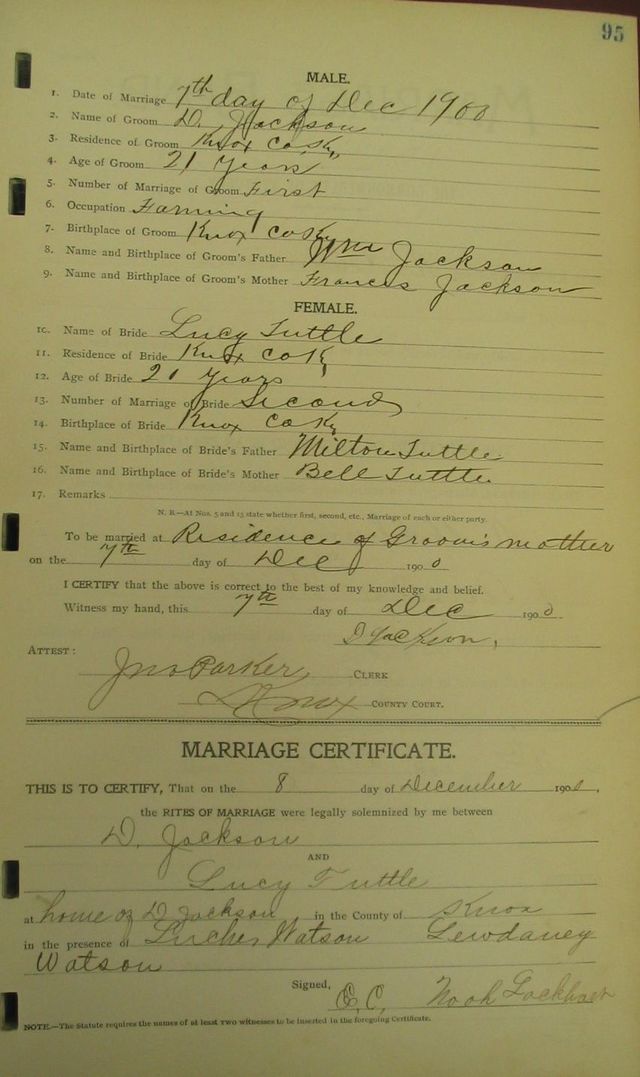 95
MALE.
1. Date of Marriage 7th day of Dec 1900
2. Name of Groom D. Jackson
3. Residence of Groom Knox Co Ky,
4. Age of Groom 21 Years
5. Number of Marriage of Groom First
6. Occupation Farming
7. Birthplace of Groom Knox Co Ky
8. Name and Birthplace of Groom's Father Wm Jackson
9. Name and Birthplace of Groom's Mother Frances Jackson
FEMALE.
10. Name of Bride Lucy Tuttle
11. Residence of Bride Knox Co K
12. Age of Bride 21 Years
13. Number of Marriage of Bride Second
14. Birthplace of Bride Knox Co Ky
15. Name and Birthplace of Bride's Father Milton Tuttle
16. Name and Birthplace of Bride's Mother Bell Tuttle
17. Remarks
N. B.—At Nos. 5 and 13 state whether first, second, etc., Marriage of each or either party.
To be married at Residence of Groom's mother
on the 7th day of Dec 1900
I CERTIFY that the above is correct to the best of my knowledge and belief.
Witness my hand, this 7th day of Dec 1900
D Jackson,
ATTEST:
Jno Parker, CLERK
Knox COUNTY COURT.
MARRIAGE CERTIFICATE.
THIS IS TO CERTIFY, That on the 8 day of December 1900,
the RITES OF MARRIAGE were legally solemnized by me between
D. Jackson
AND
Lucy Tuttle
at home of D Jackson in the County of Knox
in the presence of Watson
Watson
Signed,
Noah Lockhart
NOTE.—The Statute requires the names of at least two witnesses to be inserted in the foregoing Certificate.